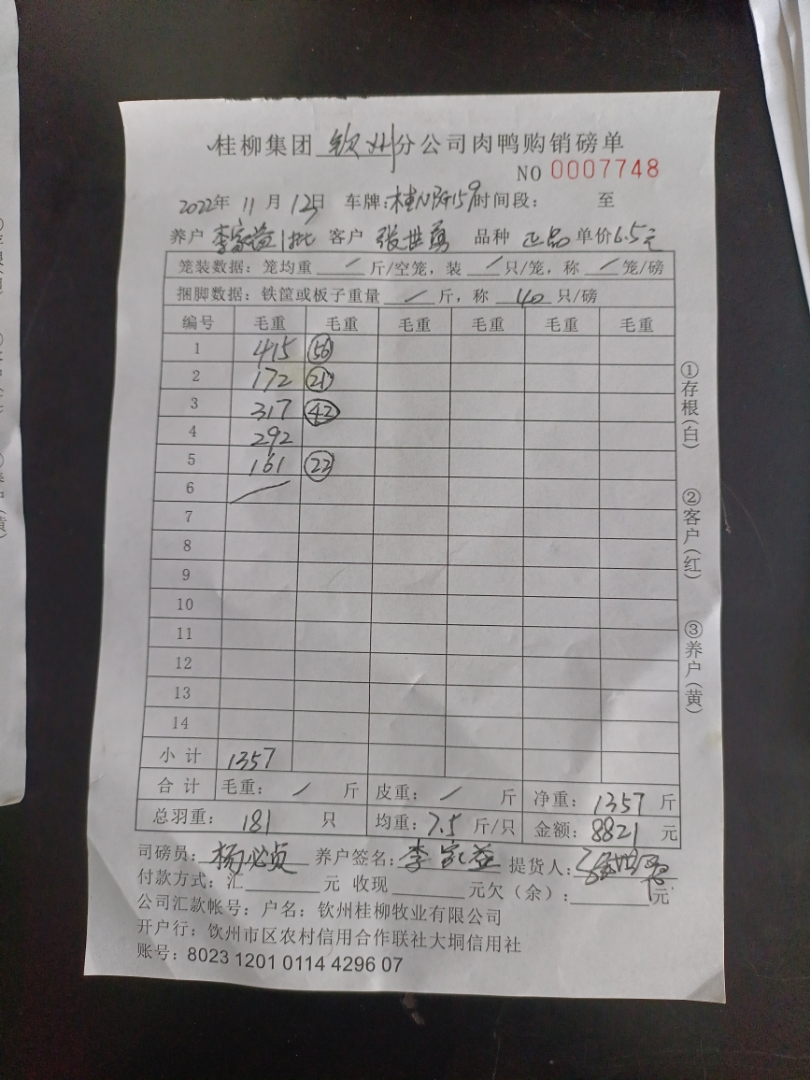 桂柳集团 钦州 分公司肉鸭购销磅单
NO 0007748
2022年 11月 12日 车牌: 时间段: 至
养户 李家益1批 客户 张世勇 品种 正品 单价6.5元
笼装数据: 笼均重 / 斤/空笼, 装 / 只/笼, 称 / 笼/磅
捆脚数据: 铁筐或板子重量 / 斤, 称 40 只/磅
编号 毛重 毛重 毛重 毛重 毛重 毛重
1 415 56
2 172 21
3 317 42
4 292
5 161 22
6 /
7
8
9
10
11
12
13
14
小计 1357
合计 毛重: / 斤 皮重: / 斤 净重: 1357 斤
总羽重: 181 只 均重: 7.5 斤/只 金额: 8821 元
司磅员: 杨必贞 养户签名: 李家益 提货人: 张世勇
付款方式: 汇 元 收现 元欠(余): 元
公司汇款帐号: 户名: 钦州桂柳牧业有限公司
开户行: 钦州市区农村信用合作联社大垌信用社
账号: 8023 1201 0114 4296 07
①存根(白)
②客户(红)
③养户(黄)